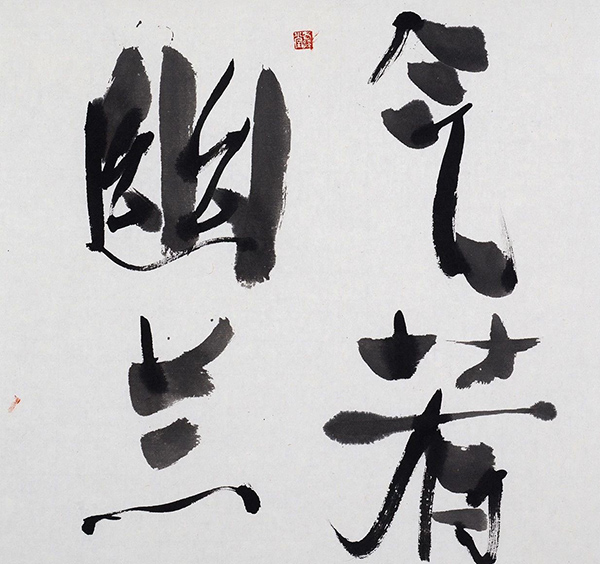 气若
幽兰